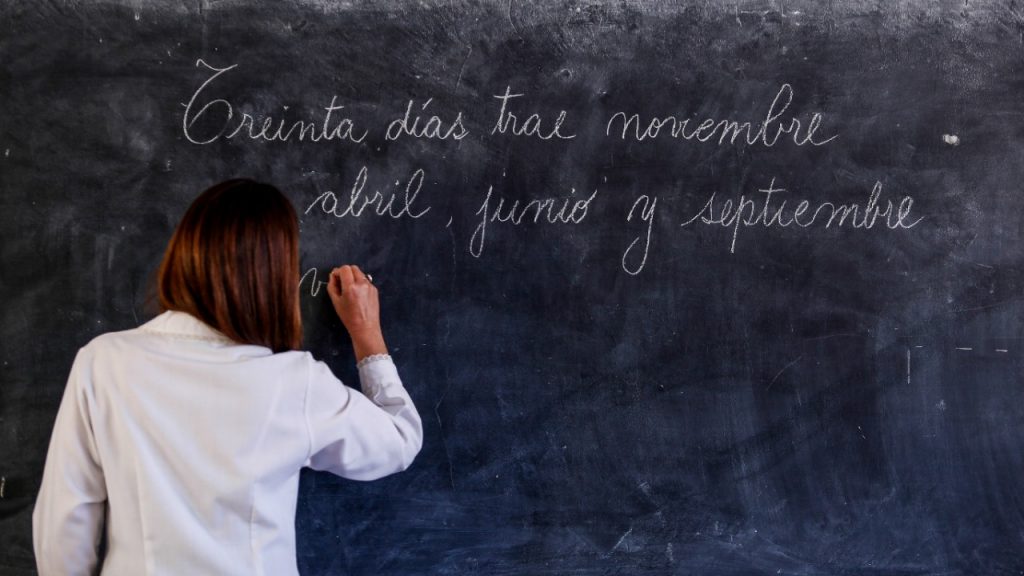 Treinta días trae noviembre
abril, junio y septiembre
v